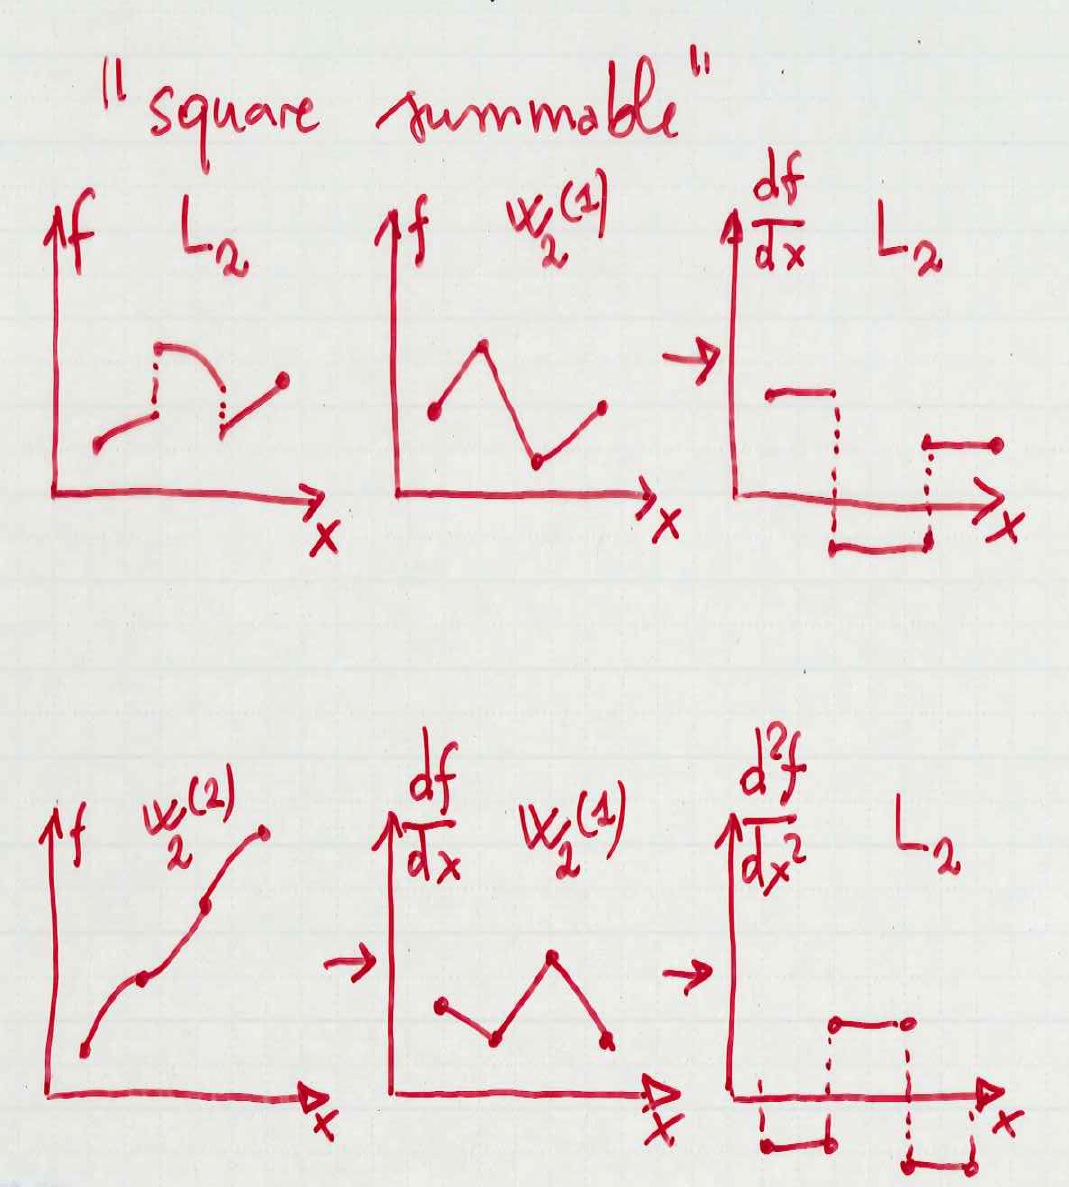 "square summable"
f L₂ f W₂⁽¹⁾ df/dx L₂
x x x
f W₂⁽²⁾ df/dx W₂⁽¹⁾ d²f/dx² L₂
x x x